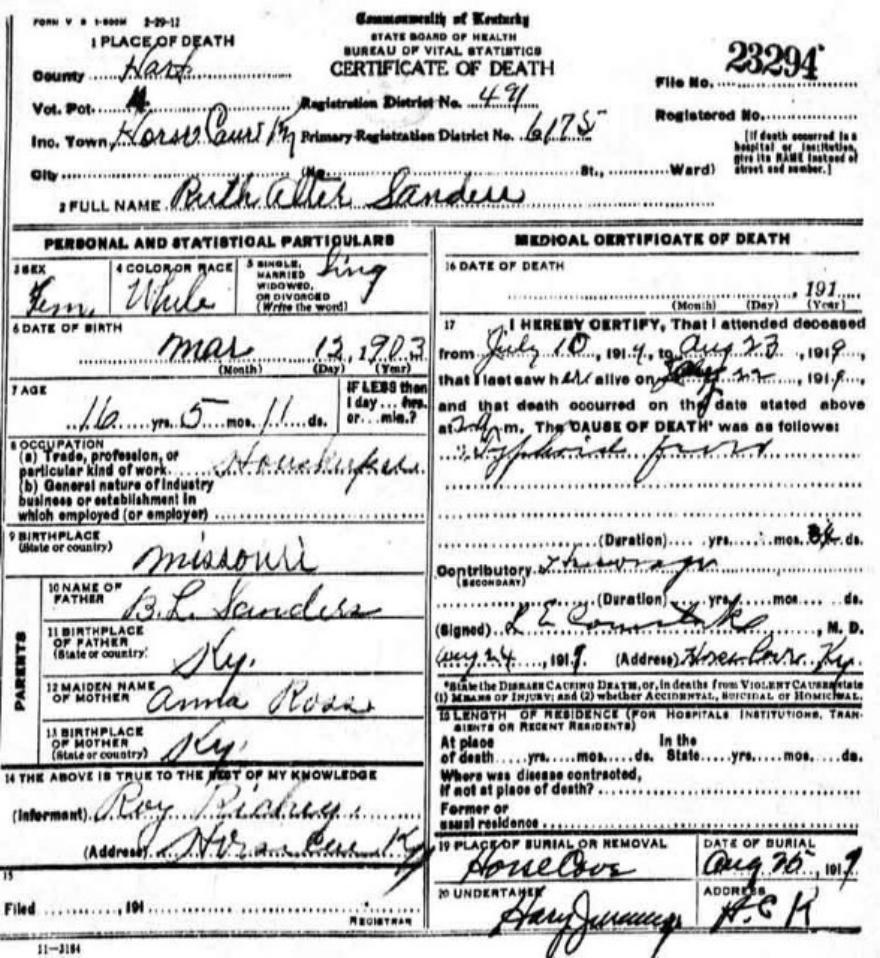 FORM V S 1-500M 2-29-12
Commonwealth of Kentucky
STATE BOARD OF HEALTH
BUREAU OF VITAL STATISTICS
CERTIFICATE OF DEATH
1 PLACE OF DEATH
County Hart
Vot. Pct.
Inc. Town Horse Cave Ky
City (No. St., Ward)
Registration District No. 491
Primary Registration District No. 6175
File No. 23294
Registered No.
[If death occurred in a
hospital or institution,
give its NAME instead of
street and number.]
2 FULL NAME Ruth Alter Sanders
PERSONAL AND STATISTICAL PARTICULARS
3 SEX
Fem.
4 COLOR OR RACE
White
5 SINGLE,
MARRIED
WIDOWED,
OR DIVORCED
(Write the word)
Sing
6 DATE OF BIRTH
Mar 12, 1903
(Month) (Day) (Year)
7 AGE
16 yrs. 5 mos. 11 ds.
IF LESS than
1 day ... hrs.
or ... min.?
8 OCCUPATION
(a) Trade, profession, or
particular kind of work Housekeeper
(b) General nature of industry
business or establishment in
which employed (or employer)
9 BIRTHPLACE
(State or country)
Missouri
PARENTS
10 NAME OF
FATHER
B. L. Sanders
11 BIRTHPLACE
OF FATHER
(State or country)
Ky.
12 MAIDEN NAME
OF MOTHER
Anna Ross
13 BIRTHPLACE
OF MOTHER
(State or country)
Ky.
14 THE ABOVE IS TRUE TO THE BEST OF MY KNOWLEDGE
(Informant) Roy Richey
(Address) Horse Cave Ky
15
Filed , 191
REGISTRAR
11-3184
MEDICAL CERTIFICATE OF DEATH
16 DATE OF DEATH
, 191
(Month) (Day) (Year)
17 I HEREBY CERTIFY, That I attended deceased
from July 10, 1919, to Aug 23, 1919,
that I last saw her alive on Aug 22, 1919,
and that death occurred on the date stated above
at m. The CAUSE OF DEATH* was as follows:
Typhoid fever
(Duration) yrs. mos. ds.
Contributory
(SECONDARY)
(Duration) yrs. mos. ds.
(Signed) Comstock, M. D.
Aug 24, 1919 (Address) Horse Cave Ky.
*State the DISEASE CAUSING DEATH, or, in deaths from VIOLENT CAUSES state
(1) MEANS OF INJURY; and (2) whether ACCIDENTAL, SUICIDAL or HOMICIDAL.
18 LENGTH OF RESIDENCE (FOR HOSPITALS INSTITUTIONS, TRAN-
SIENTS OR RECENT RESIDENTS)
At place In the
of death yrs. mos. ds. State yrs. mos. ds.
Where was disease contracted,
if not at place of death?
Former or
usual residence
19 PLACE OF BURIAL OR REMOVAL
Horse Cave
DATE OF BURIAL
Aug 25, 1919
20 UNDERTAKER
Harry Jennings
ADDRESS
H. C K